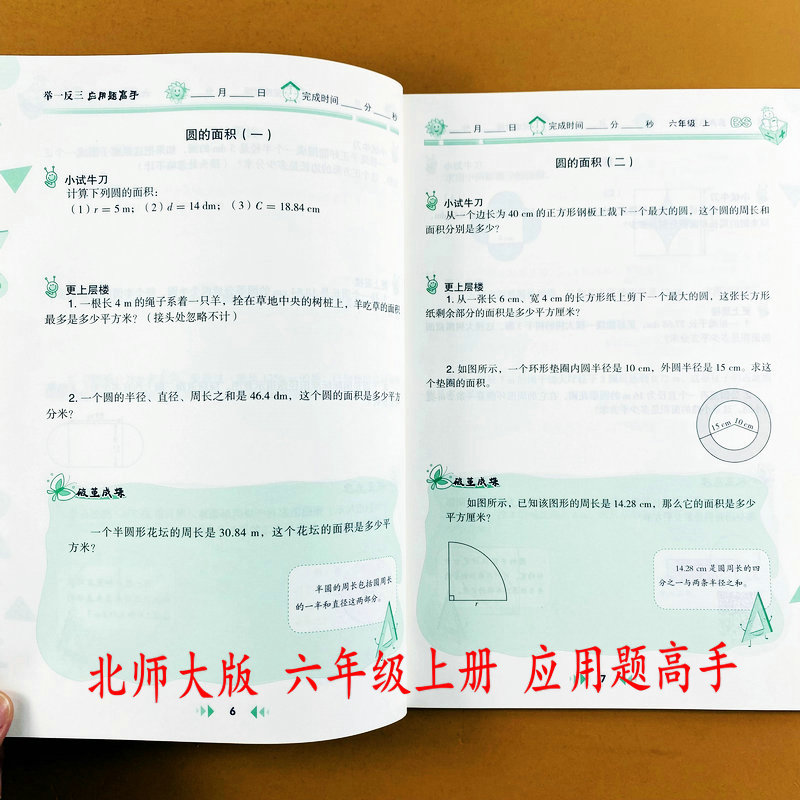 举一反三 应用题高手 ____月____日 完成时间____分____秒
圆的面积（一）
小试牛刀
计算下列圆的面积：
（1）r = 5 m；（2）d = 14 dm；（3）C = 18.84 cm
更上层楼
1. 一根长 4 m 的绳子系着一只羊，拴在草地中央的树桩上，羊吃草的面积
最多是多少平方米？（接头处忽略不计）
2. 一个圆的半径、直径、周长之和是 46.4 dm，这个圆的面积是多少平方
分米？
破茧成蝶
一个半圆形花坛的周长是 30.84 m，这个花坛的面积是多少平
方米？
半圆的周长包括圆周长
的一半和直径这两部分。
6
____月____日 完成时间____分____秒 六年级 上 BS
圆的面积（二）
小试牛刀
从一个边长为 40 cm 的正方形钢板上裁下一个最大的圆，这个圆的周长和
面积分别是多少？
更上层楼
1. 从一张长 6 cm、宽 4 cm 的长方形纸上剪下一个最大的圆，这张长方形
纸剩余部分的面积是多少平方厘米？
2. 如图所示，一个环形垫圈内圆半径是 10 cm，外圆半径是 15 cm。求这
个垫圈的面积。
15 cm 10 cm
破茧成蝶
如图所示，已知该图形的周长是 14.28 cm，那么它的面积是多少
平方厘米？
14.28 cm 是圆周长的四
分之一与两条半径之和。
r
7
北师大版 六年级上册 应用题高手